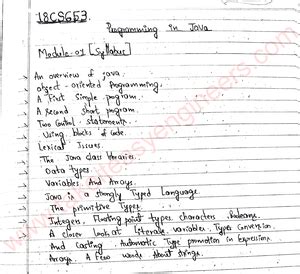 18CS653
Programming in Java
Module-01 [Syllabus]
An overview of java.
object-oriented programming.
A First Simple program.
A Second short program.
Two Control statements.
Using blocks of code.
Lexical Issues.
The Java class libraries.
Data types
Variables And Arrays.
Java is a strongly Typed Language.
The primitive Types.
Integers, Floating point types, characters, Booleans.
A closer Look at Literals, variables, Type Conversion.
And Casting, Automatic Type promotion in Expressions.
Arrays. A few words About strings.